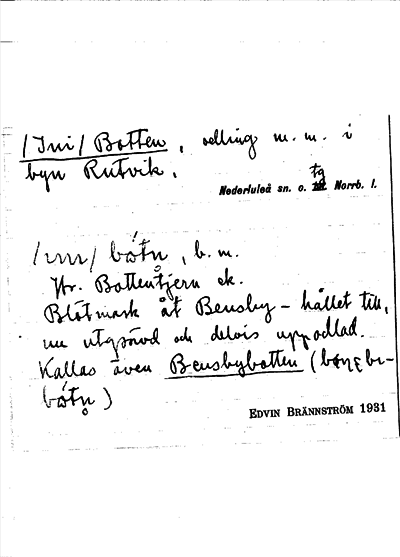 /Ini/ Botten, odling m. m. i
byn Rutvik.
Nederluleå sn. o. tg Norrb. l.
/ını/ bótn̥, b. m.
Hr. Bottentjern ek.
Blötmark åt Bensby – hållet till,
nu utgrävd och delvis uppodlad.
Kallas även Bensbybotten (
bótn̥)
EDVIN BRÄNNSTRÖM 1931